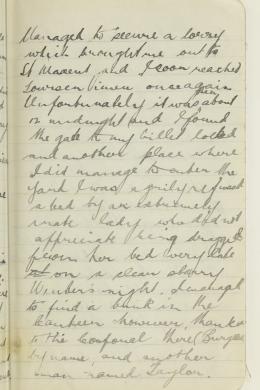 Managed to secure a lorry
which brought me out to
St Maxent, and I soon reached
Tours en Vimeu once again.
Unfortunately it was then about
midnight and I found
the gate to my billet locked
and another place where
I did manage to enter the
yard I was angrily refused
a bed by an extremely
irate lady who did not
appreciate being dragged
from her bed very late
on a clean starry
Winter's night. I managed
to find a bunk in the
Canteen however, thanks
to the Corporal there, Burgess
by name, and another
man named Taylor.